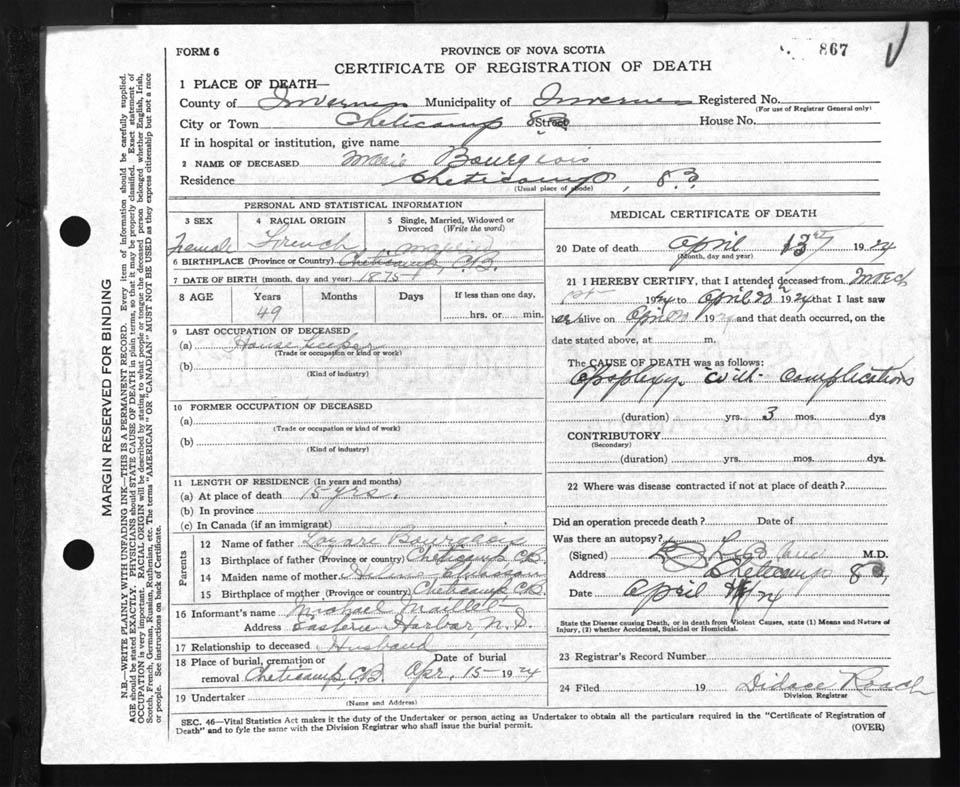 867
FORM 6
PROVINCE OF NOVA SCOTIA
CERTIFICATE OF REGISTRATION OF DEATH
1 PLACE OF DEATH—
County of Inverness Municipality of Inverness Registered No.
(For use of Registrar General only)
City or Town Cheticamp Street House No.
If in hospital or institution, give name
2 NAME OF DECEASED Marie Bourgeois
Residence Cheticamp, 83
(Usual place of abode)
PERSONAL AND STATISTICAL INFORMATION
3 SEX 4 RACIAL ORIGIN 5 Single, Married, Widowed or Divorced (Write the word)
Female French married
6 BIRTHPLACE (Province or Country) Cheticamp, C.B.
7 DATE OF BIRTH (month, day and year) 1875
8 AGE Years Months Days If less than one day,
49 hrs. or min.
9 LAST OCCUPATION OF DECEASED
(a) House keeper
(Trade or occupation or kind or work)
(b)
(Kind of industry)
10 FORMER OCCUPATION OF DECEASED
(a)
(Trade or occupation or kind of work)
(b)
(Kind of industry)
11 LENGTH OF RESIDENCE (In years and months)
(a) At place of death 15 yrs.
(b) In province
(c) In Canada (if an immigrant)
Parents
12 Name of father Lazare Bourgeois
13 Birthplace of father (Province or country) Cheticamp C.B.
14 Maiden name of mother
15 Birthplace of mother (Province or country) Cheticamp, C.B.
16 Informant's name Michael Maillet
Address Eastern Harbor, N.S.
17 Relationship to deceased Husband
18 Place of burial, cremation or Date of burial
removal Cheticamp, C.B. Apr. 15 1924
19 Undertaker
(Name and Address)
MEDICAL CERTIFICATE OF DEATH
20 Date of death April 13 1924
(Month, day and year)
21 I HEREBY CERTIFY, that I attended deceased from March
1924 to April 1924 that I last saw
her alive on April 19 and that death occurred, on the
date stated above, at m.
The CAUSE OF DEATH was as follows:
Apoplexy with complications
(duration) yrs. 3 mos. dys
CONTRIBUTORY
(Secondary)
(duration) yrs. mos. dys.
22 Where was disease contracted if not at place of death?
Did an operation precede death? Date of
Was there an autopsy?
(Signed) M.D.
Address Cheticamp
Date April 24
State the Disease causing Death, or in death from Violent Causes, state (1) Means and Nature of
Injury, (2) whether Accidental, Suicidal or Homicidal.
23 Registrar's Record Number
24 Filed 19
Division Registrar
SEC. 46—Vital Statistics Act makes it the duty of the Undertaker or person acting as Undertaker to obtain all the particulars required in the "Certificate of Registration of
Death" and to fyle the same with the Division Registrar who shall issue the burial permit.
(OVER)
MARGIN RESERVED FOR BINDING
N.B.—WRITE PLAINLY WITH UNFADING INK—THIS IS A PERMANENT RECORD. Every item of information should be carefully supplied.
AGE should be stated EXACTLY. PHYSICIANS should STATE CAUSE OF DEATH in plain terms, so that it may be properly classified. Exact statement of
OCCUPATION is very important. RACIAL ORIGIN will be described by stating to what people or tongue the deceased person belonged whether English, Irish,
Scotch, French, German, Russian, Ruthenian, etc. The terms "AMERICAN" OR "CANADIAN" MUST NOT BE USED as they express citizenship but not a race
or people. See instructions on back of Certificate.